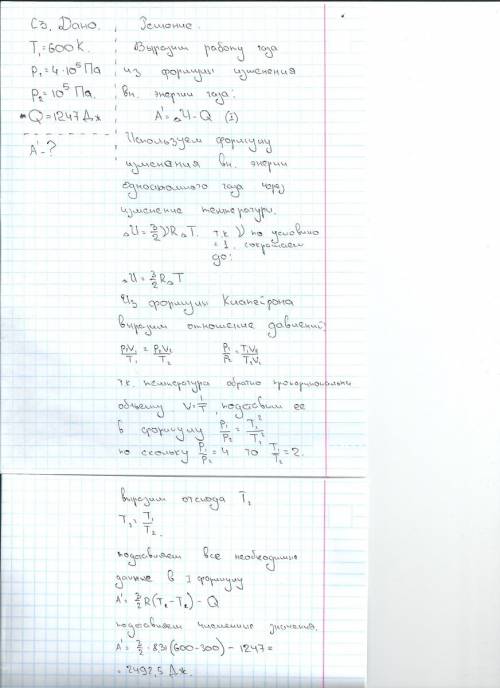 С3. Дано.
T₁=600К.
P₁=4·10⁵Па
P₂=10⁵Па.
Q=1247Дж
A'-?
Решение.
Выразим работу газа
из формулы изменения
вн. энергии газа:
A'=△U-Q (1)
Используем формулу
изменения вн. энергии
одноатомного газа через
изменение температуры.
△U=3/2 νR△T. т.к ν по условию
=1. сокращаем
до:
△U=3/2 R△T
Из формулы Клапейрона
выразим отношение давлений:
P₁V₁/T₁=P₂V₂/T₂ P₁/P₂=T₁V₂/T₂V₁
т.к. температура обратно пропорциональна
объему V=1/T, подставим ее
в формулу P₁/P₂=T₁²/T₂²
по скольку P₁/P₂=4 то T₁/T₂=2.
выразим отсюда T₂
подставляем все необходимые
данные в 1 формулу
A'=3/2 R(T₁-T₂)-Q
подставляем численные значения.
A'=3/2·8,31(600-300)-1247=
=2492,5 Дж.